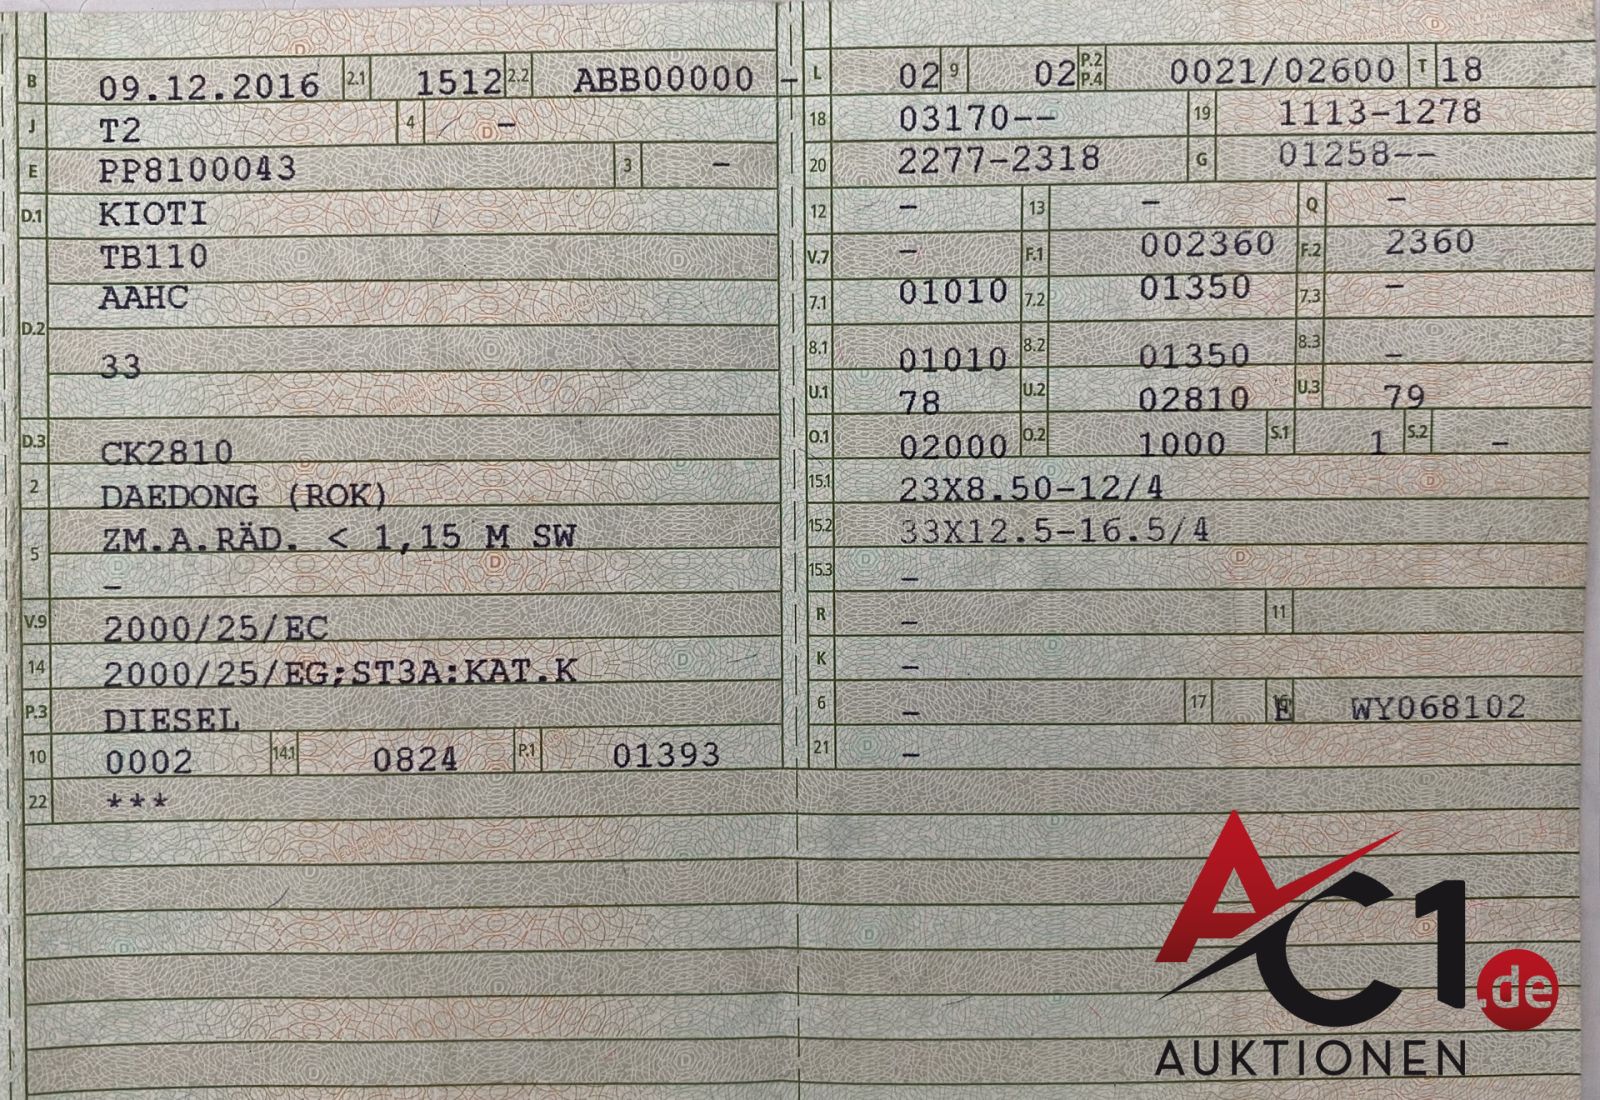 B 09.12.2016 2.1 1512 2.2 ABB00000 –
J T2 4 –
E PP8100043 3 –
D.1 KIOTI
TB110
D.2 AAHC
33
D.3 CK2810
2 DAEDONG (ROK)
5 ZM.A.RÄD. < 1,15 M SW
–
V.9 2000/25/EC
14 2000/25/EG;ST3A:KAT.K
P.3 DIESEL
10 0002 14.1 0824 P.1 01393
22 ***
L 02 9 02 P.2 P.4 0021/02600 T 18
18 03170-- 19 1113-1278
20 2277-2318 G 01258--
12 – 13 – Q –
V.7 – F.1 002360 F.2 2360
7.1 01010 7.2 01350 7.3 –
8.1 01010 8.2 01350 8.3 –
U.1 78 U.2 02810 U.3 79
O.1 02000 O.2 1000 S.1 1 S.2 –
15.1 23X8.50-12/4
15.2 33X12.5-16.5/4
15.3 –
R – 11
K –
6 – 17 E WY068102
21 –
AC1.de
AUKTIONEN